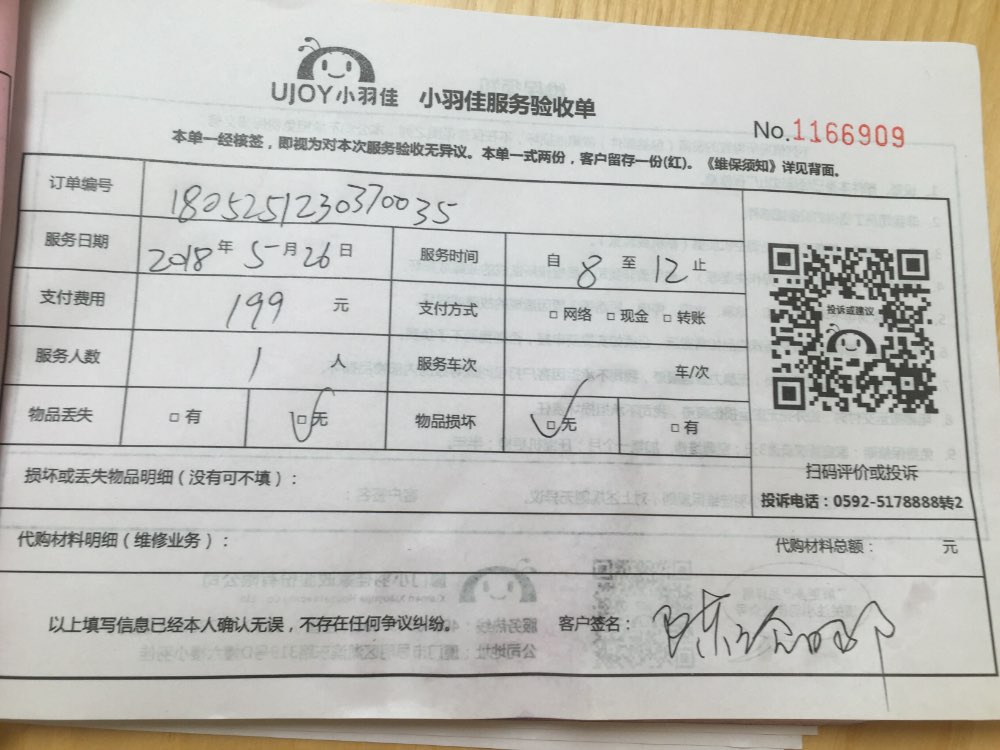 UJOY小羽佳 小羽佳服务验收单
No.1166909
本单一经核签，即视为对本次服务验收无异议。本单一式两份，客户留存一份(红)。《维保须知》详见背面。
订单编号 1805251230370035
服务日期 2018年5月26日 服务时间 自8至12止
支付费用 199元 支付方式 □网络 □现金 □转账
服务人数 1人 服务车次 车/次
物品丢失 □有 □无 物品损坏 □无 □有
投诉或建议
扫码评价或投诉
投诉电话：0592-5178888转2
损坏或丢失物品明细（没有可不填）：
代购材料明细（维修业务）： 代购材料总额： 元
以上填写信息已经本人确认无误，不存在任何争议纠纷。 客户签名：